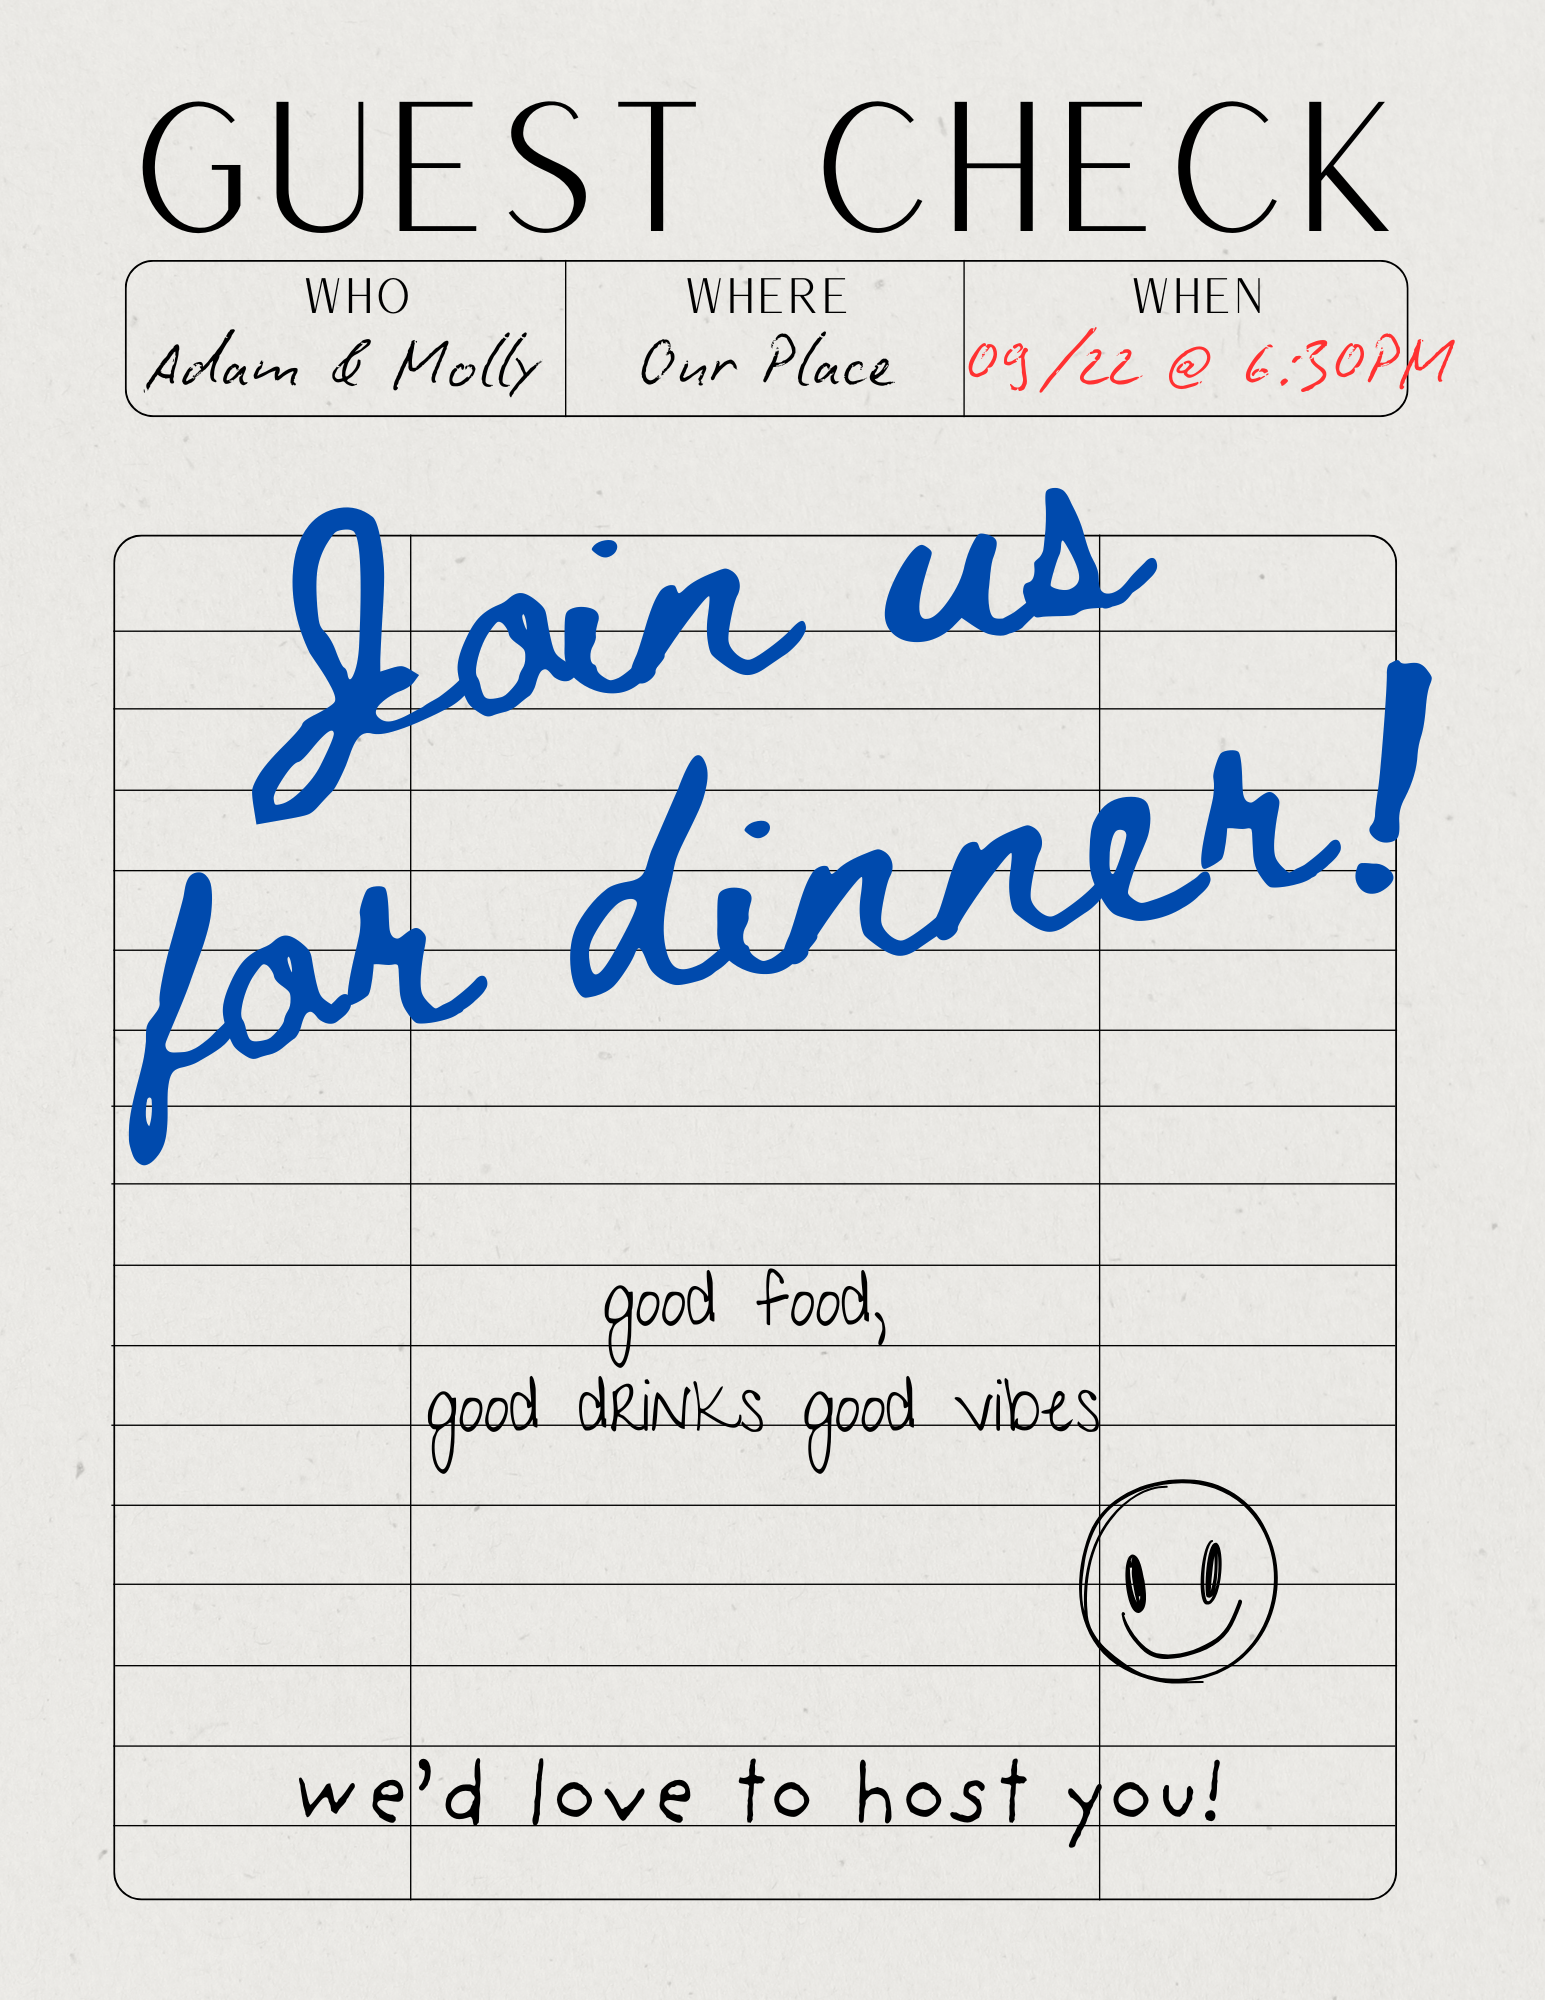 GUEST CHECK
WHO
Adam & Molly
WHERE
Our Place
WHEN
09/22 @ 6:30PM
Join us
for dinner!
good food,
good dRiNKs good vibes
we'd love to host you!